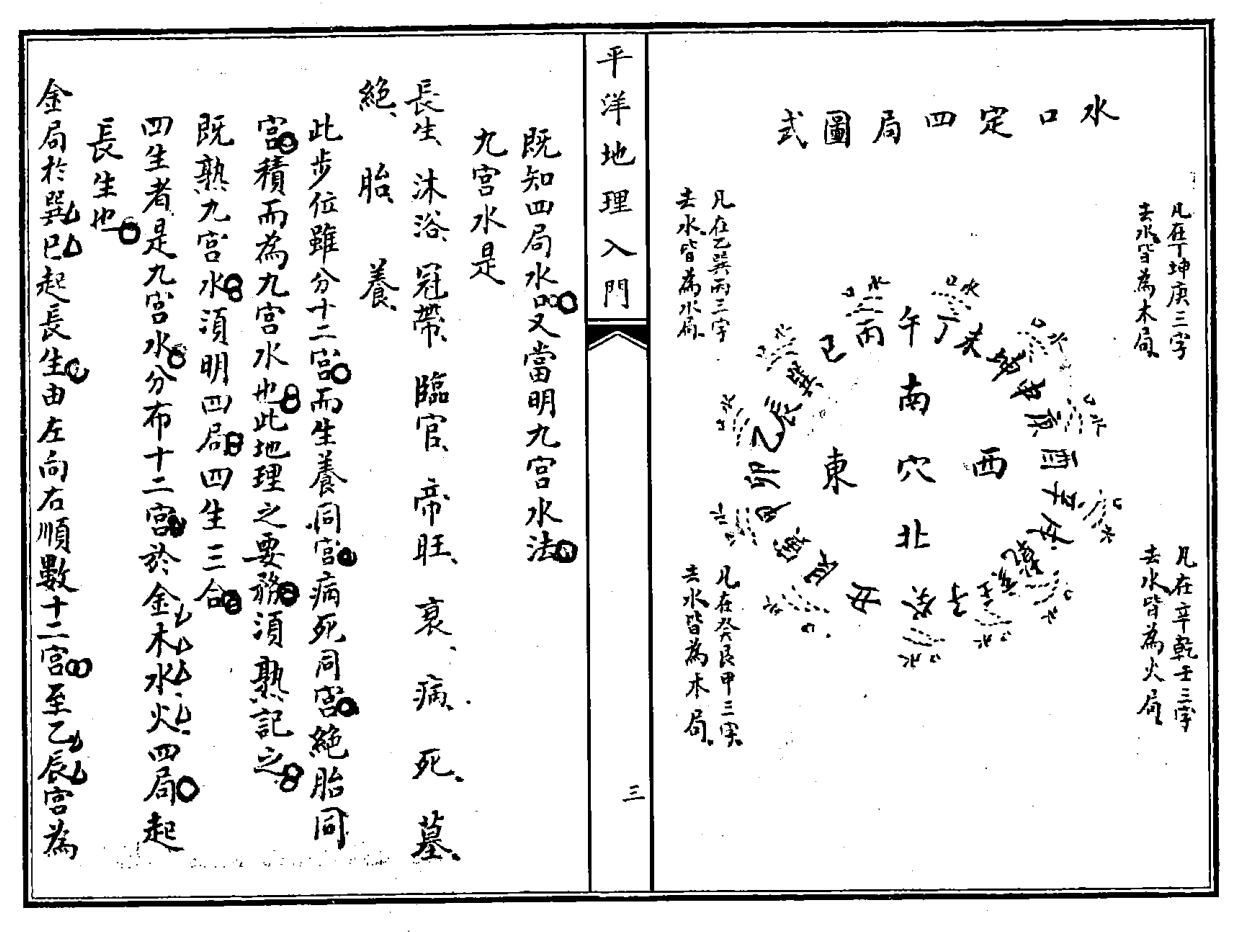 水口定四局圖式
凡在丁坤庚三字
去水皆為木局
凡在乙巽丙三字
去水皆為水局
凡在辛乾壬三字
去水皆為火局
凡在癸艮甲三字
去水皆為木局
午丁未坤申庚酉辛戌乾亥壬子癸丑艮寅甲卯乙辰巽巳丙
水口
水口
水口
水口
水口
水口
水口
水口
水口
水口
水口
水口
南
西穴東
北
平洋地理入門
三
既知四局水口又當明九宮水法
九宮水是
長生、沐浴、冠帶、臨官、帝旺、衰、病、死、墓、
絕、胎、養、
此步位雖分十二宮而生養同宮病死同宮絕胎同
宮積而為九宮水也此地理之要務須熟記之
既熟九宮水須明四局四生三合
四生者是九宮水分布十二宮於金木水火四局起
長生也
金局於巽巳起長生由左向右順數十二宮至乙辰宮為